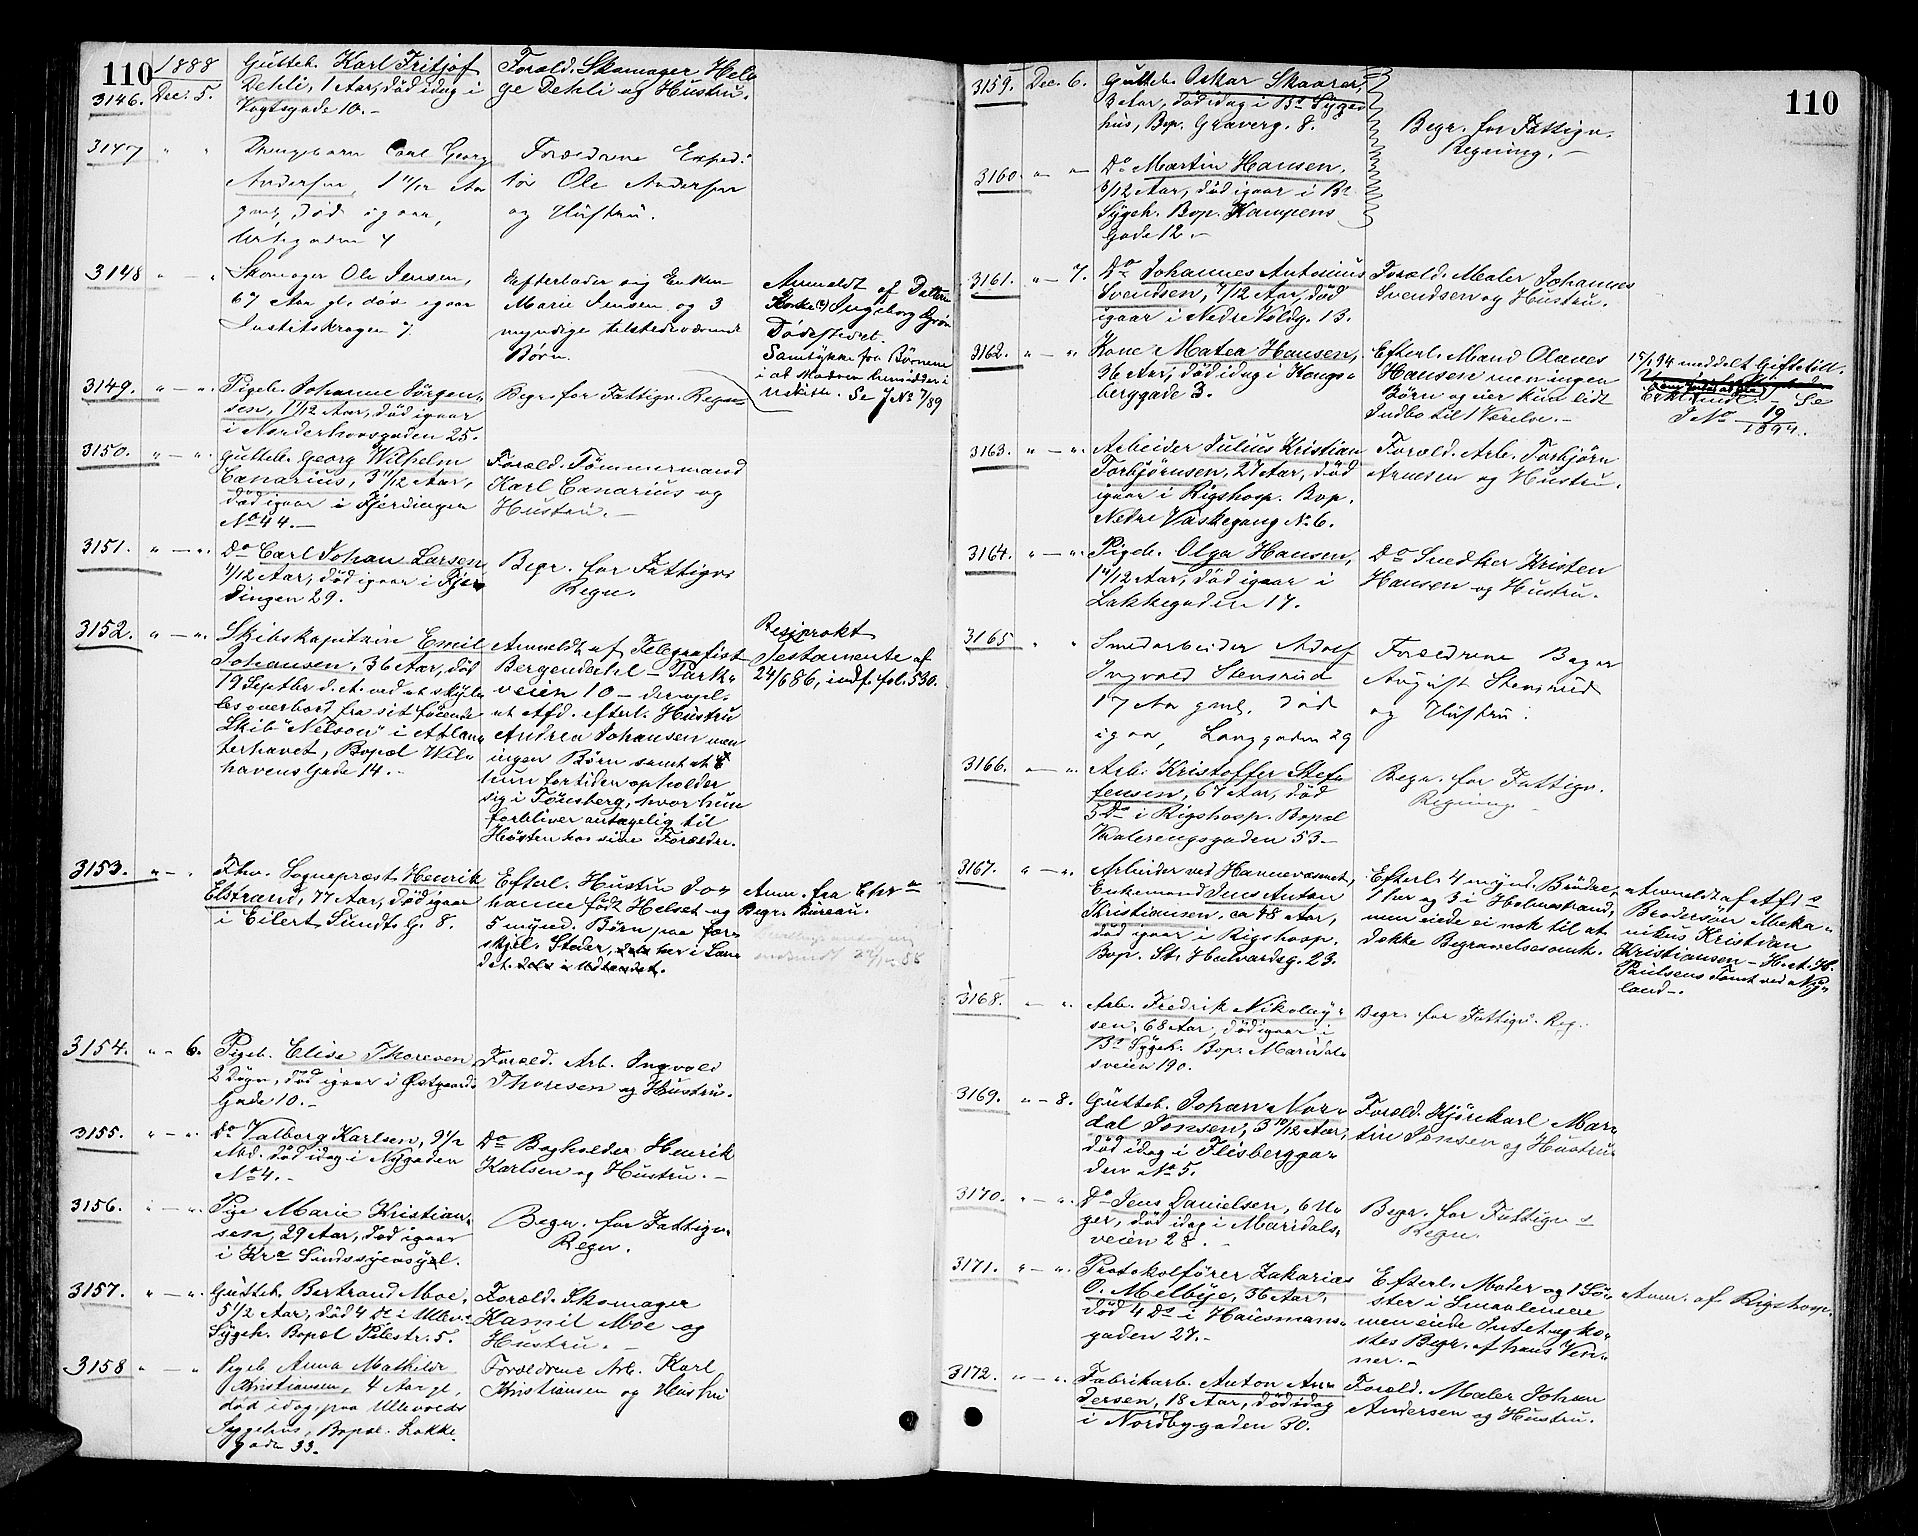 110
1888
3146. Dec. 5.
Gutteb. Karl Fritjof
Dehli, 1 Aar, död idag i
Vogtsgade 10.-
Foræld. Skomager Hel-
ge Dehli og Hustru.
3147 " "
Drengebarn Carl Georg
Andersen, 1 11/12 Aar
gml, död igaar,
Urtegaden 4
Forældrene Exped-
tör Ole Andersen
og Hustru.
3148 " - "
Skomager Ole Jensen,
67 Aar gl. död igaar
Justitskrogen 7.
Efterlader sig Enken
Marie Jensen og 3
myndige tilstedeværende
Börn.
Anmeldt af Datteren
Ingeborg Grön
Dödsstedet.
Samtykke fra Börnene
i at Moderen hensidder i
uskifte. Se J No 7/89
3149. " - "
Pigeb. Johanne Jörgen-
sen, 1 1/12 Aar, död igaar
i Norderhovsgaden 25.
Begr. for Fattigv. Regn.
3150. " - "
Gutteb. Georg Wilhelm
Canarius, 3 11/12 Aar,
död igaar i Fjerdingen
No 44.-
Foræld. Tömmermand
Karl Canarius og
Hustru.-
3151. " - "
Do Carl Johan Larsen,
1/12 Aar, död igaar i Fjer-
dingen 29.
Begr. for Fattigvs
Regn.
3152. " - "
Skibskaptain Emil
Johansen, 36 Aar, död
19 Septbr d.A. ved at skyl-
les overbord fra sit förende
Skib "Nelson" i Atlan-
terhavet, Bopæl Wel-
havens Gade 14.-
Anmeldt af Telegrafist
Bergendahl - Park-
veien 10 - der opl.
at Afd. efterl. Hustru
Andrea Johansen men
ingen Börn samt at
hun for tiden opholder
sig i Tönsberg, hvor hun
forbliver antagelig til
Hösten hos sine Forældre.
Resiprokt
Testamente af
24/6 86, indf. fol. 530.
3153. " - "
Fhv. Sognepræst Henrik
Elstrand, 77 Aar, död igaar
i Eilert Sundts G. 8.
Efterl. Hustru Jo-
hanne född Helset og
5 mynd. Börn paa for-
skjel. Steder, dels her i Lan-
det dels i Udlandet.
Anm. fra Chra
Begr. Bureau.
3154. " - 6.
Pigeb. Elise Thoresen
2 Dögn, död igaar i Østgaards
Gade 10.-
Foræld. Arb. Ingvald
Thoresen og Hustru.
3155. " - "
Do Valborg Karlsen, 9 1/2
Md. död idag i Nygaden
No 4.-
Do Bogholder Henrik
Karlsen og Hustru.-
3156. " - "
Pige Marie Kristian-
sen, 29 Aar, död igaar
i Kra Sindssygeasyl.
Begr. for Fattigv.
Regn.
3157. " - "
Gutteb. Bertrand Moe,
5 1/2 Aar, död 4 Ds i Ullev.
Sygeh. Bopæl Pilestr. 5.
Foræld. Skomager
Hamil Moe og
Hustru.-
3158 " - "
Pigeb Anna Mathilde
Kristiansen, 4 Aar gl,
död idag paa Ullevolds
Sygehus, Bopæl Lakke-
gade 33.
Forældrene Arb. Karl
Kristiansen og Hustru
110
3159. Dec. 6.
Gutteb. Oskar Skaarer,
3 Aar, död idag i Bs Syge-
hus, Bop. Graverg. 8.
Begr. for Fattigv.
Regning.-
3160 " - "
Do Martin Hansen,
3/12 Aar, död igaar i Bs
Sygeh. Bop. Kampens
Gade 12.-
3161. " - 7.
Do Johannes Antonius
Svendsen, 7/12 Aar, död
igaar i Nedre Voldg. 13.
Foræld. Maler Johannes
Svendsen og Hustru.
3162. " - "
Kone Matea Hansen,
36 Aar, död idag i Kongs-
berggade 3.
Efterl. Mand Olaves
Hansen men ingen
Börn og eier kun lidt
Indbo til 1 Værelse.-
15/1 94 meddelt Giftetill.
Se
J No 19/1894.
3163. " - "
Arbeider Julius Kristian
Torbjörnsen, 27 Aar, död
igaar i Rigshosp. Bop.
Nedre Vaskegang No 6.
Foræld. Arb. Torbjörn
Arnesen og Hustru.
3164. " - "
Pigeb. Olga Hansen,
1 11/12 Aar, död igaar i
Lakkegaden 17.
Do Snedker Kristen
Hansen og Hustru.
3165 " "
Smedarbeider Adolf
Ingvald Stensrud
17 Aar gml. död
igaar, Langgaden 29
Forældrene Bager
August Stensrud
og Hustru.
3166. " - "
Arb. Kristoffer Stef-
fensen, 67 Aar, död
5 Ds i Rigshosp. Bopæl
Vaalerengsgaden 53.-
Begr. for Fattigv.
Regning.
3167. " - "
Arbeider ved Havnevæsenet,
Enkemand Jens Anton
Kristiansen, ca 48 Aar,
död igaar i Rigshosp.
Bop. St. Halvardsg. 23.
Efterl. 4 mynd. Brödre,
1 her og 3 i Holmestrand,
men eiede ei nok til at
dække Begravelsesomk.
Anmeldt af Afds
Brodersön Meka-
nikus Kristian
Kristiansen - H. st. H.
Paulsens Tomt ved Ny-
land.-
3168. " - "
Arb. Fredrik Nikolay-
sen, 68 Aar, död igaar i
Bs Sygeh. Bop. Maridal-
sveien 190.
Begr. for Fattigv. Reg.
3169. " - 8.
Gutteb. Johan Nor-
dal Jonsen, 3 10/12 Aar,
död idag i Flisberggа-
den No 5.
Foræld. Kjörekarl Mar-
tin Jonsen og Hustru
3170. " - "
Do Jens Danielsen, 6 U-
ger, död idag i Maridals-
veien 28.
Begr. for Fattigvs
Regn.
3171. " - "
Protokolförer Zakarias
O. Melbye, 36 Aar,
död 4 Ds i Hausmans-
gaden 27.-
Efterl. Moder og 1 Sö-
ster i Smaalenene
men eiede Intet og ko-
stes Begr. af hans Ven-
ner.-
Anm. af Rigshosp.
3172. " - "
Fabrikarb. Anton An-
dersen, 18 Aar, död idag
i Nordbygaden 30.
Foræld. Maler Johan
Andersen og Hustru.